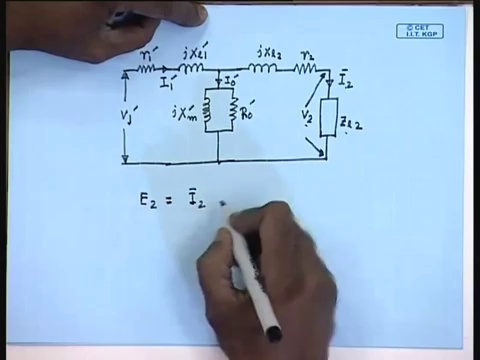 © CET
I.I.T. KGP
r₁′ jxₑ₁′ jxₑ₂ r₂
I₁′ I₀′ Ī₂
V₁′ jXₘ′ R₀′ V₂ Zₑ₂
E₂ = Ī₂